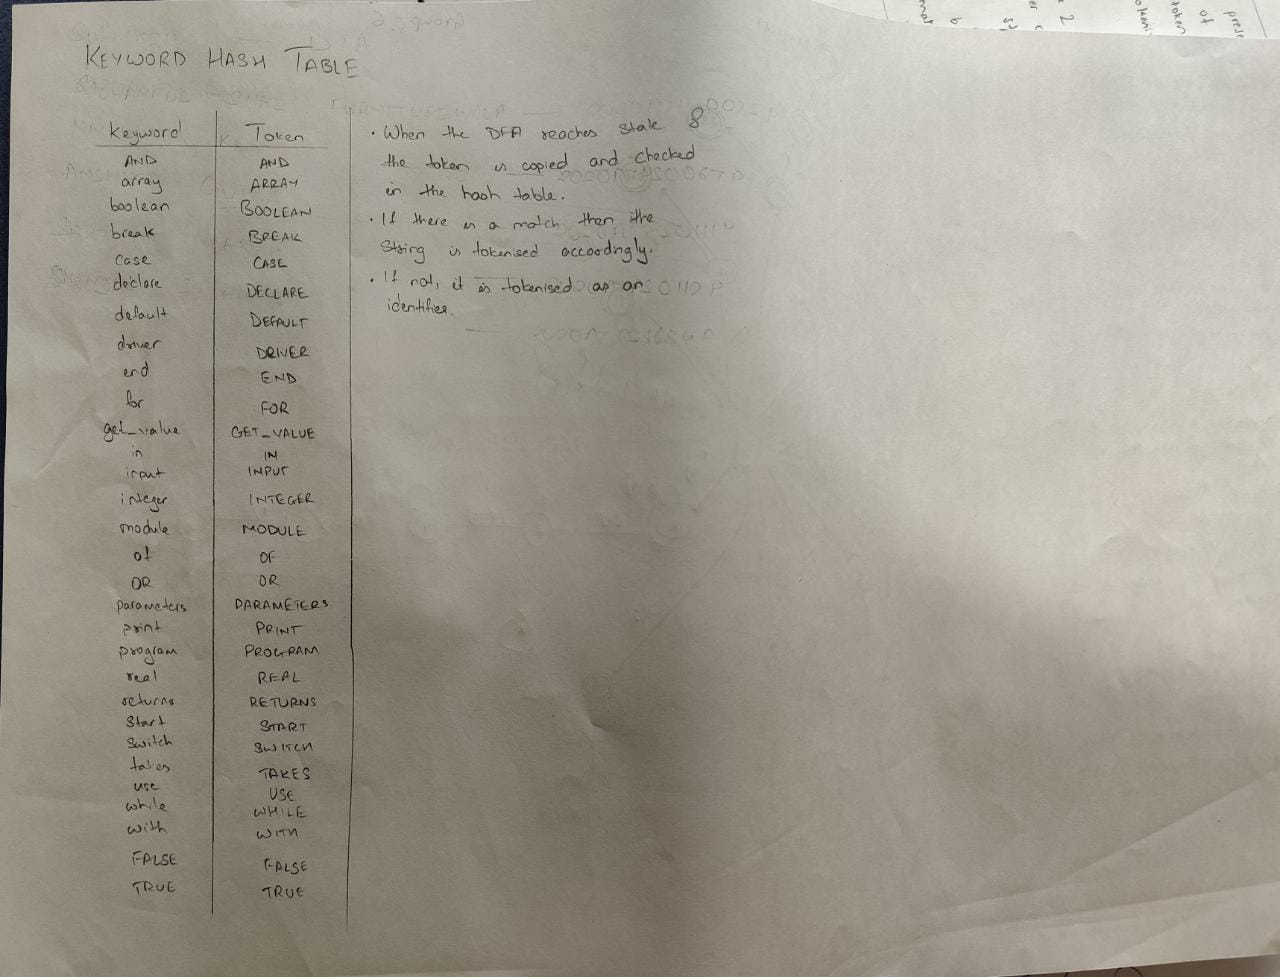 KEYWORD HASH TABLE
Keyword Token
AND AND
array ARRAY
boolean BOOLEAN
break BREAK
case CASE
declare DECLARE
default DEFAULT
driver DRIVER
end END
for FOR
get_value GET_VALUE
in IN
input INPUT
integer INTEGER
module MODULE
of OF
OR OR
parameters PARAMETERS
print PRINT
program PROGRAM
real REAL
returns RETURNS
start START
switch SWITCH
takes TAKES
use USE
while WHILE
with WITH
FALSE FALSE
TRUE TRUE
• When the DFA reaches state 8
the token is copied and checked
in the hash table.
• If there is a match then the
string is tokenised accordingly.
• If not, it is tokenised as an
identifier.
of
token